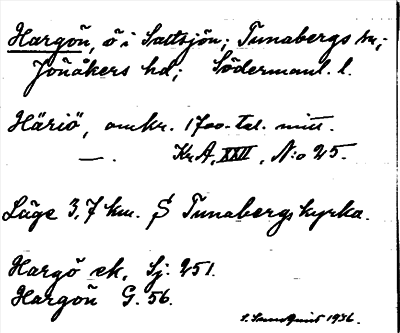 Hargön, ö i Saltsjön; Tunabergs sn;
Jönåkers hd; Södermanl. l.
Häriö, omkr. 1700-tal. mitt.
—. Kr.A, XXII, N:o 25.
Läge 3,7 km. S Tunabergs kyrka.
Hargö ek. Sj. 251.
Hargön G. 56.
S. Sandqvist 1936.